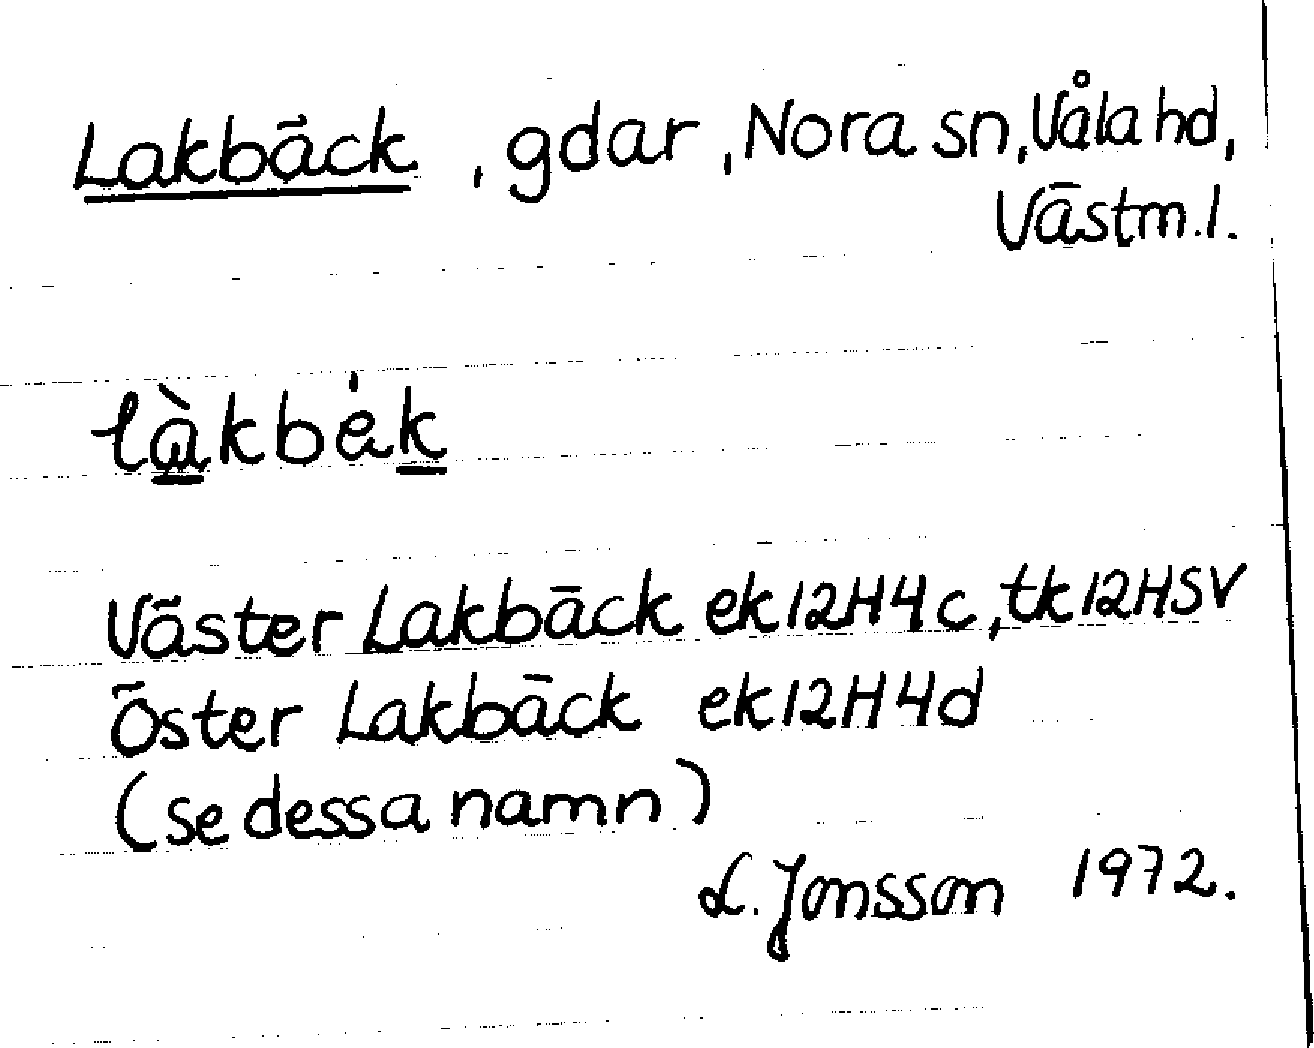 Lakbäck, gdar, Nora sn, Våla hd,
Västm.l.
làkbèk
Väster Lakbäck ek12H4c, tk12HSV
Öster Lakbäck ek12H4d
(se dessa namn)
L. Jonsson 1972.